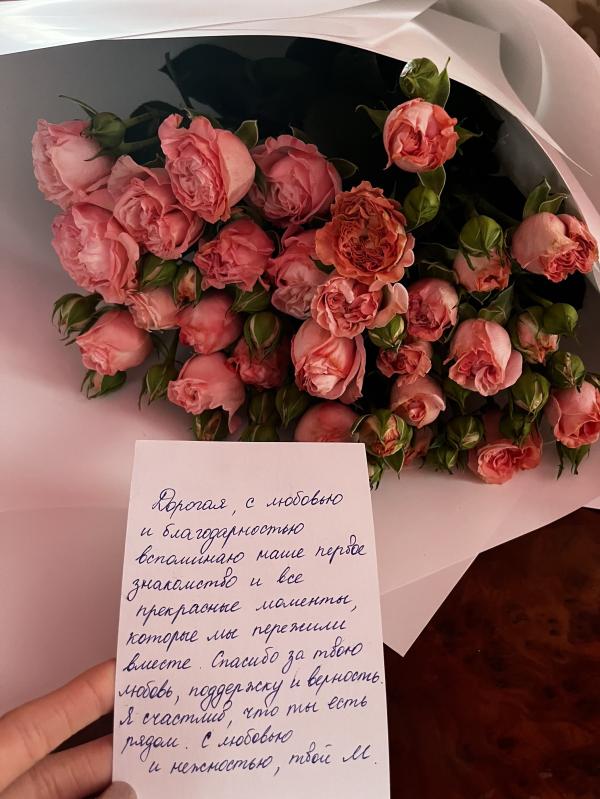 Дорогая, с любовью
и благодарностью
вспоминаю наше первое
знакомство и все
прекрасные моменты,
которые мы пережили
вместе. Спасибо за твою
любовь, поддержку и верность.
Я счастлив, что ты есть
рядом. С любовью
и нежностью, твой М.